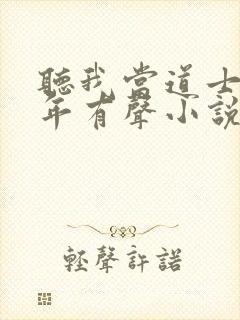 聽我當道士
年有聲小說
輕聲許諾